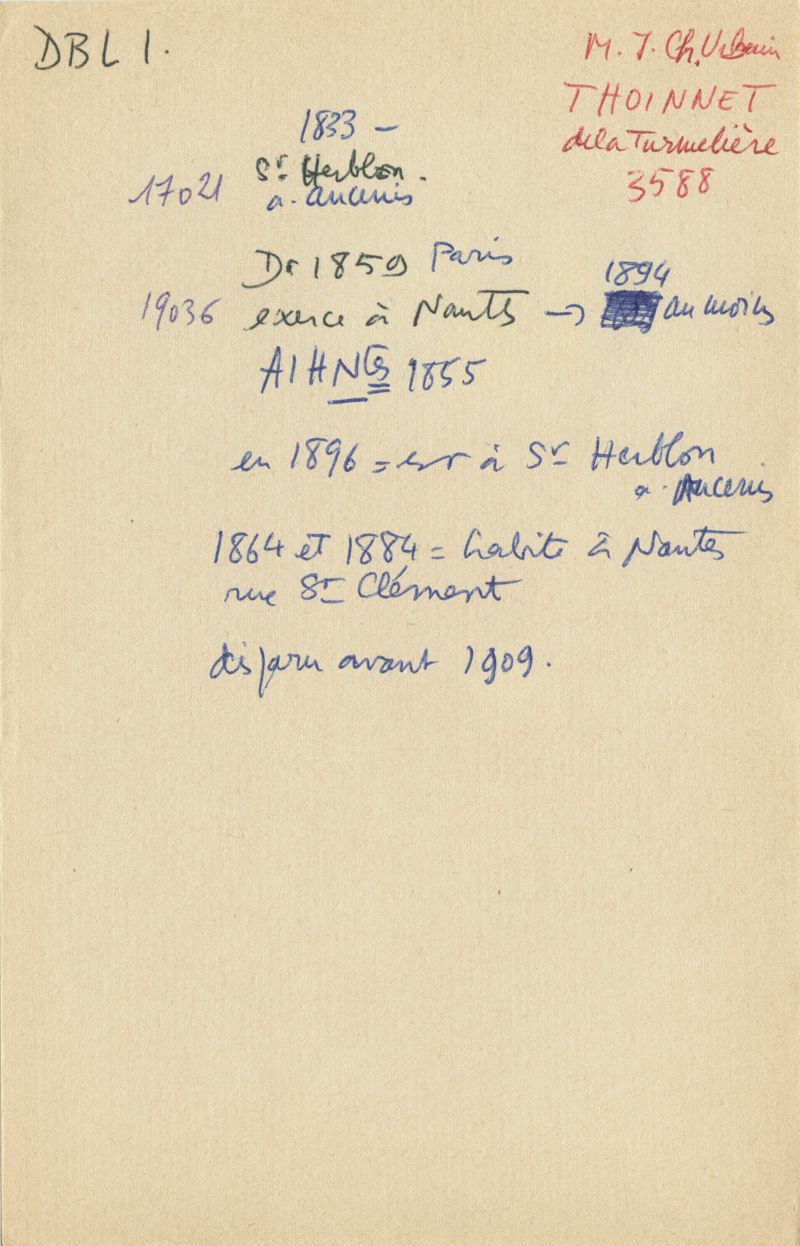 DBL 1.
M. J. Ch. Urbain
THOINNET
de la Turmelière
3588
1833 –
17021 St Herblon.
a. Ancenis
Dr 1859 Paris
1894
19036 exerce à Nantes → au moins
AIHNtes 1855
en 1896 = est à St Herblon
a. Ancenis
1864 et 1884 = habite à Nantes
rue St Clément
disparu avant 1909.